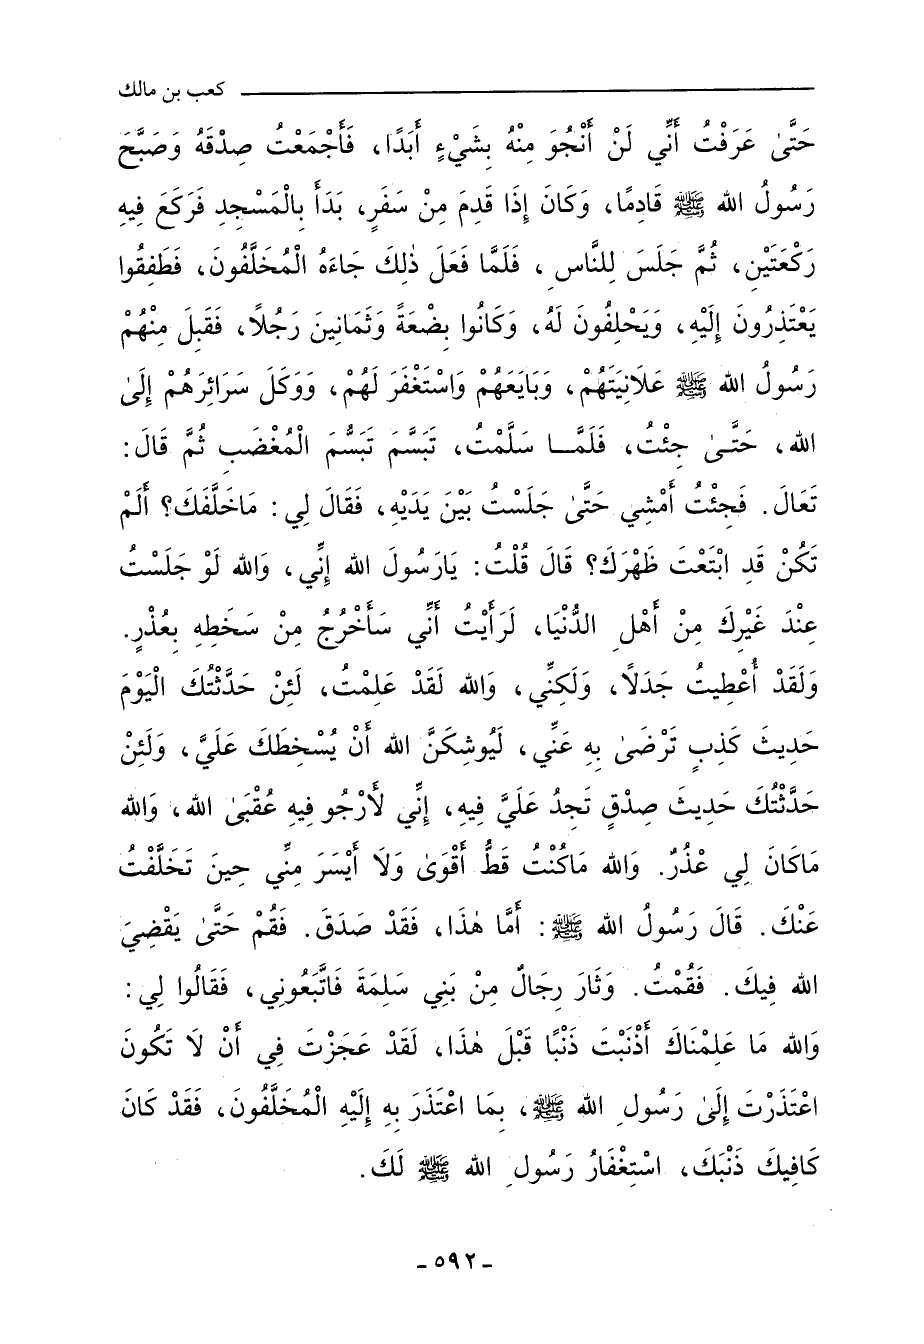 كعب بن مالك
حَتَّىٰ عَرَفْتُ أَنِّي لَنْ أَنْجُوَ مِنْهُ بِشَيْءٍ أَبَدًا، فَأَجْمَعْتُ صِدْقَهُ وَصَبَّحَ
رَسُولُ الله ﷺ قَادِمًا، وَكَانَ إِذَا قَدِمَ مِنْ سَفَرٍ، بَدَأَ بِالْمَسْجِدِ فَرَكَعَ فِيهِ
رَكْعَتَيْنِ، ثُمَّ جَلَسَ لِلنَّاسِ، فَلَمَّا فَعَلَ ذٰلِكَ جَاءَهُ الْمُخَلَّفُونَ، فَطَفِقُوا
يَعْتَذِرُونَ إِلَيْهِ، وَيَحْلِفُونَ لَهُ، وَكَانُوا بِضْعَةً وَثَمَانِينَ رَجُلًا، فَقَبِلَ مِنْهُمْ
رَسُولُ الله ﷺ عَلَانِيَتَهُمْ، وَبَايَعَهُمْ وَاسْتَغْفَرَ لَهُمْ، وَوَكَلَ سَرَائِرَهُمْ إِلَىٰ
الله، حَتَّىٰ جِئْتُ، فَلَمَّا سَلَّمْتُ، تَبَسَّمَ تَبَسُّمَ الْمُغْضَبِ ثُمَّ قَالَ:
تَعَالَ. فَجِئْتُ أَمْشِي حَتَّىٰ جَلَسْتُ بَيْنَ يَدَيْهِ، فَقَالَ لِي: مَاخَلَّفَكَ؟ أَلَمْ
تَكُنْ قَدِ ابْتَعْتَ ظَهْرَكَ؟ قَالَ قُلْتُ: يَارَسُولَ الله إِنِّي، وَالله لَوْ جَلَسْتُ
عِنْدَ غَيْرِكَ مِنْ أَهْلِ الدُّنْيَا، لَرَأَيْتُ أَنِّي سَأَخْرُجُ مِنْ سَخَطِهِ بِعُذْرٍ.
وَلَقَدْ أُعْطِيتُ جَدَلًا، وَلَكِنِّي، وَالله لَقَدْ عَلِمْتُ، لَئِنْ حَدَّثْتُكَ الْيَوْمَ
حَدِيثَ كَذِبٍ تَرْضَىٰ بِهِ عَنِّي، لَيُوشِكَنَّ الله أَنْ يُسْخِطَكَ عَلَيَّ، وَلَئِنْ
حَدَّثْتُكَ حَدِيثَ صِدْقٍ تَجِدُ عَلَيَّ فِيهِ، إِنِّي لَأَرْجُو فِيهِ عُقْبَىٰ الله، وَالله
مَاكَانَ لِي عْذُرٌ. وَالله مَاكُنْتُ قَطُّ أَقْوَىٰ وَلَا أَيْسَرَ مِنِّي حِينَ تَخَلَّفْتُ
عَنْكَ. قَالَ رَسُولُ الله ﷺ: أَمَّا هٰذَا، فَقَدْ صَدَقَ. فَقُمْ حَتَّىٰ يَقْضِيَ
الله فِيكَ. فَقُمْتُ. وَثَارَ رِجَالٌ مِنْ بَنِي سَلِمَةَ فَاتَّبَعُونِي، فَقَالُوا لِي:
وَالله مَا عَلِمْنَاكَ أَذْنَبْتَ ذَنْبًا قَبْلَ هٰذَا، لَقَدْ عَجَزْتَ فِي أَنْ لَا تَكُونَ
اعْتَذَرْتَ إِلَىٰ رَسُولِ الله ﷺ، بِمَا اعْتَذَرَ بِهِ إِلَيْهِ الْمُخَلَّفُونَ، فَقَدْ كَانَ
كَافِيكَ ذَنْبَكَ، اسْتِغْفَارُ رَسُولِ الله ﷺ لَكَ.
- ٥٩٢ -